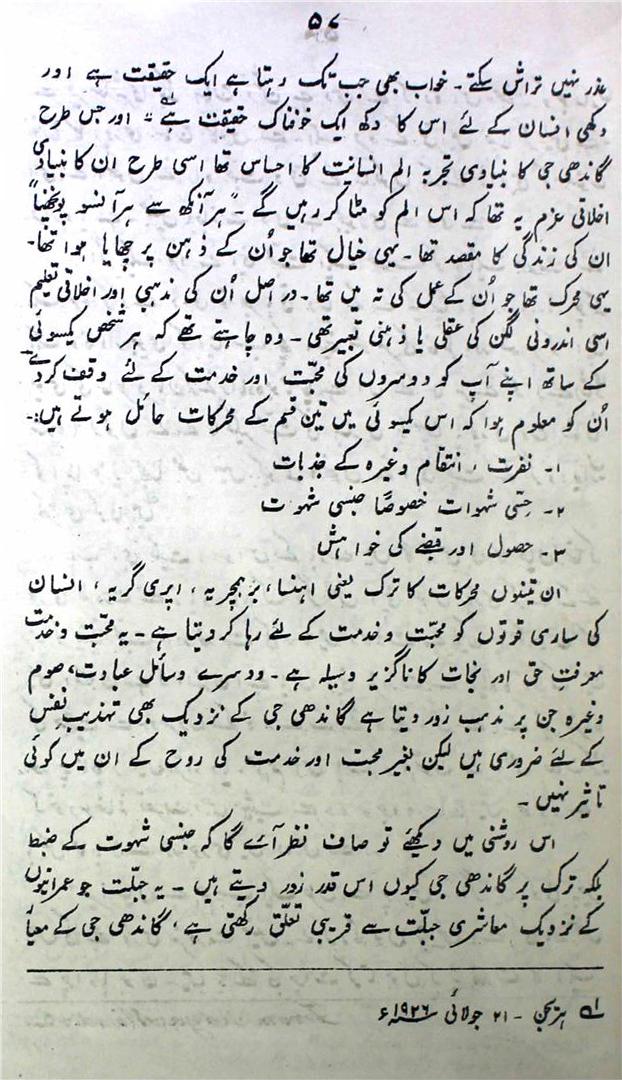 ۵۷
عذر نہیں تراش سکتے۔ خواب بھی جب تک رہتا ہے ایک حقیقت ہے اور
دکھی انسان کے لئے اس کا دکھ ایک خوفناک حقیقت ہے"۱؎ اور جس طرح
گاندھی جی کا بنیادی تجربہ الم انسانیت کا احساس تھا اسی طرح ان کا بنیادی
اخلاقی عزم یہ تھا کہ اس الم کو مٹا کر رہیں گے۔ "ہر آنکھ سے ہر آنسو پونچھنا"
ان کی زندگی کا مقصد تھا۔ یہی خیال تھا جو اُن کے ذہن پر چھایا ہوا تھا۔
یہی محرک تھا جو اُن کے عمل کی تہ میں تھا۔ در اصل اُن کی مذہبی اور اخلاقی تعلیم
اسی اندرونی لگن کی عقلی یا ذہنی تعبیر تھی۔ وہ چاہتے تھے کہ ہر شخص یکسوئی
کے ساتھ اپنے آپ کو دوسروں کی محبّت اور خدمت کے لئے وقف کردے۔
اُن کو معلوم ہوا کہ اس یکسوئی میں تین قسم کے محرکات حائل ہوتے ہیں:۔
۱۔ نفرت، انتقام وغیرہ کے جذبات
۲۔ حِسّی شہوات خصوصًا جنسی شہوت
۳۔ حصول اور قبضے کی خواہش
ان تینوں محرکات کا ترک یعنی اہنسا، برہمچریہ، اپری گریہ، انسان
کی ساری قوتوں کو محبّت و خدمت کے لئے رہا کر دیتا ہے۔ یہ محبّت و خدمت
معرفتِ حق اور نجات کا ناگزیر وسیلہ ہے۔ دوسرے وسائل عبادت، صوم
وغیرہ جن پر مذہب زور دیتا ہے گاندھی جی کے نزدیک بھی تہذیبِ نفس
کے لئے ضروری ہیں لیکن بغیر محبت اور خدمت کی روح کے ان میں کوئی
تاثیر نہیں۔
اس روشنی میں دیکھئے تو صاف نظر آئے گا کہ جنسی شہوت کے ضبط
بلکہ ترک پر گاندھی جی کیوں اس قدر زور دیتے ہیں۔ یہ جبلّت جو عمرانیوں
کے نزدیک معاشری جبلّت سے قریبی تعلّق رکھتی ہے، گاندھی جی کے معیار
۱؎ ہریجن - ۲۱ جولائی ۱۹۲۶ء